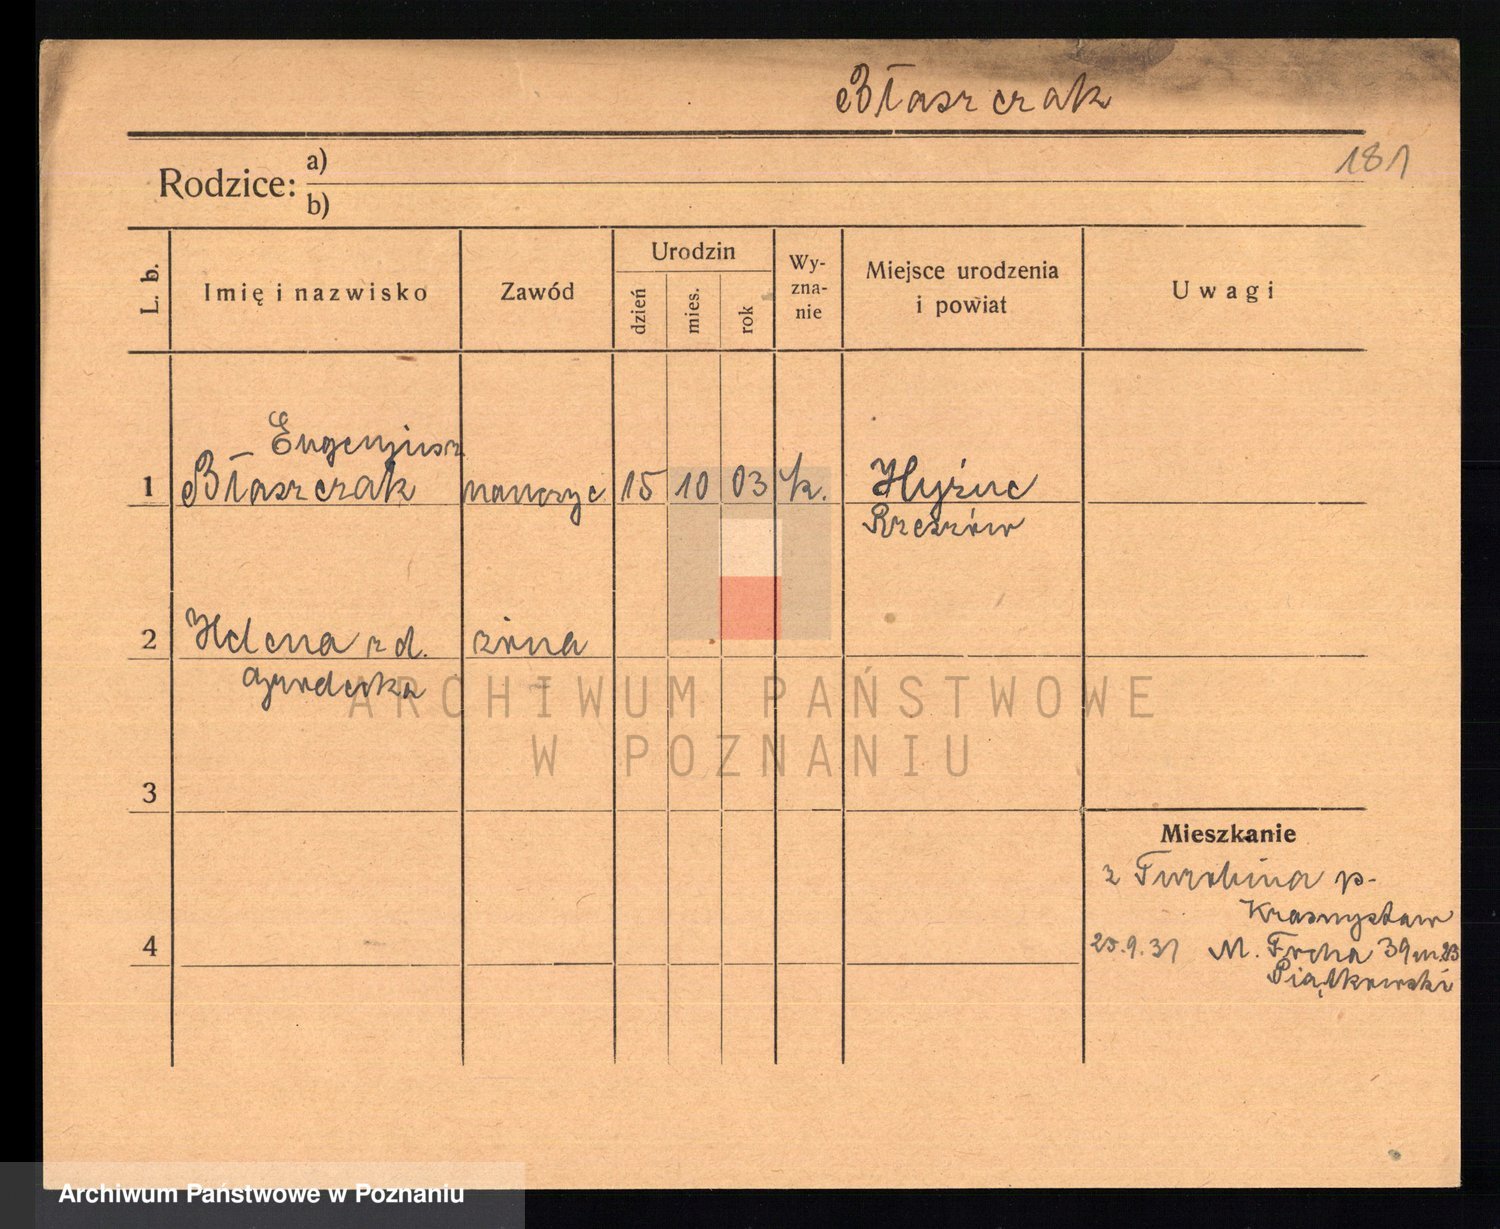 Błaszczak
181
Rodzice: a)
b)
L. b.
Imię i nazwisko
Zawód
Urodzin
dzień
mies.
rok
Wy-
zna-
nie
Miejsce urodzenia
i powiat
Uwagi
Eugenjusz
1 Błaszczak nauczyc 15 10 03 k. Hyżne
Rzeszów
2 Helena z d. żona
3
4
Mieszkanie
z Turobina p-
Krasnystaw
25.9.31 M. Focha 39 m. 23
Piątkowski
ARCHIWUM PAŃSTWOWE
W POZNANIU
Archiwum Państwowe w Poznaniu